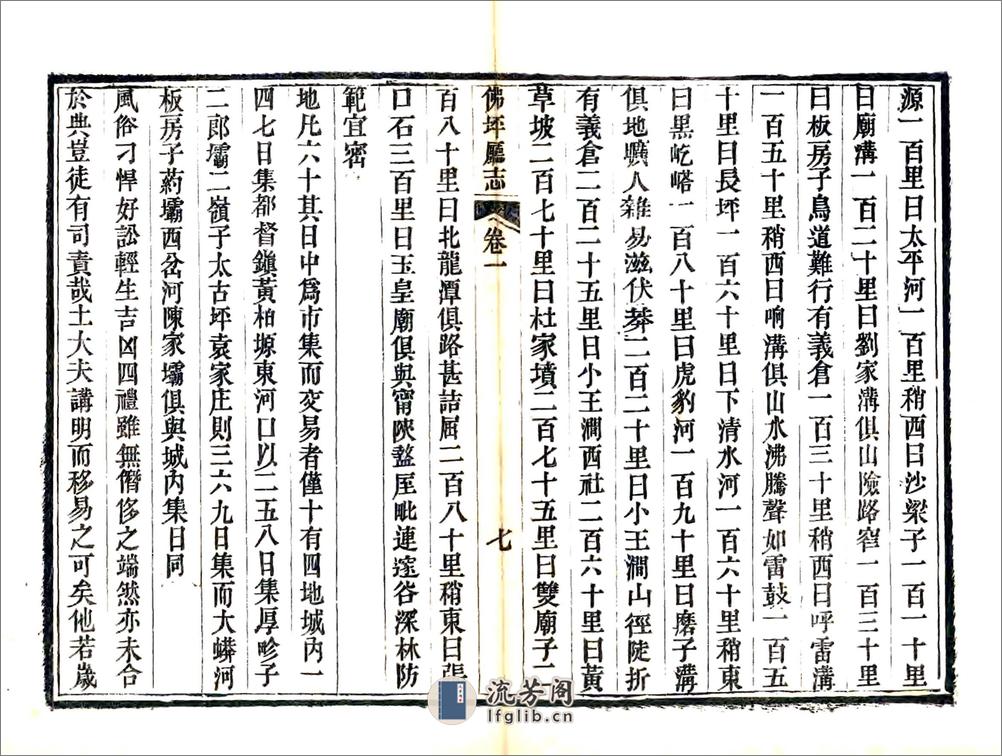 源一百里曰太平河一百里稍西曰沙梁子一百一十里
曰廟溝一百二十里曰劉家溝俱山險路窄一百三十里
曰板房子鳥道難行有義倉一百三十里稍西曰呼雷溝
一百五十里稍西曰响溝俱山水沸騰聲如雷鼓一百五
十里曰長坪一百六十里曰下清水河一百六十里稍東
曰黑屹嵧一百八十里曰虎豹河一百九十里曰磨子溝
俱地曠人雜易滋伏莽二百二十里曰小王澗山徑陡折
有義倉二百二十五里曰小王澗西社二百六十里曰黃
草坡二百七十里曰杜家墳二百七十五里曰雙廟子二
佛坪廳志 卷一 七
百八十里曰北龍潭俱路甚詰屈二百八十里稍東曰張
口石三百里曰玉皇廟俱與甯陝盩厔毗連邃谷深林防
範宜密
地凡六十其日中爲市集而交易者僅十有四地城內一
四七日集都督鎭黃柏塬東河口以二五八日集厚畛子
二郎壩二嶺子太古坪袁家庄則三六九日集而大蟒河
板房子葯壩西岔河陳家壩俱與城內集日同
風俗刁悍好訟輕生吉凶四禮雖無僭侈之端然亦未合
於典豈徒有司責哉士大夫講明而移易之可矣他若歲
流芳阁
lfglib.cn